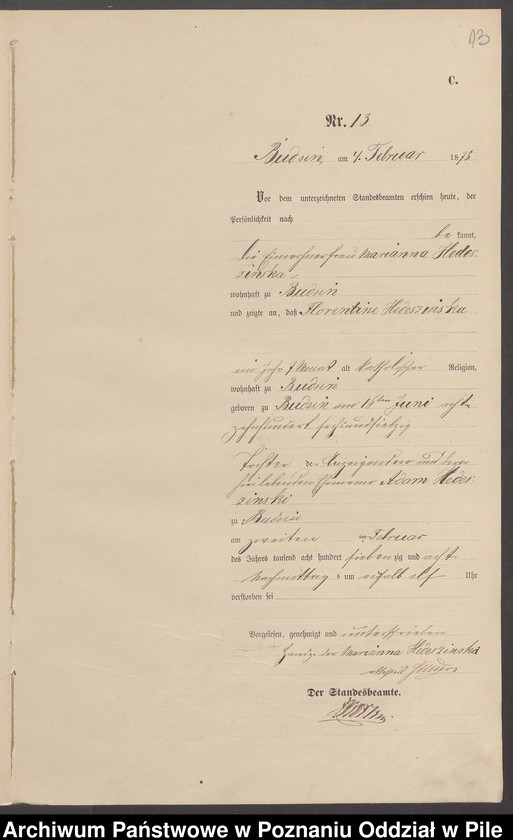 13
C.
Nr. 13
Budsin, am 4. Februar 1878
Vor dem unterzeichneten Standesbeamten erschien heute, der
Persönlichkeit nach
be kannt,
die Einwohnerfrau Marianna Hedes-
zinska
wohnhaft zu Budsin
und zeigte an, daß Florentine Hedeszinska
ein Jahr 7 Monat alt katholischer Religion,
wohnhaft zu Budsin
geboren zu Budsin am 16ten Juni acht-
zehnhundert sechsundsiebzig
Tochter der Anzeigenden und
Adam Hedes-
zinski
zu Budsin
am zweiten Februar
des Jahres tausend acht hundert siebenzig und acht
Nachmittag s um elf Uhr
verstorben sei
Vorgelesen, genehmigt und unterschrieben
+++ der Marianna Hedeszinska
Der Standesbeamte.
Archiwum Państwowe w Poznaniu Oddział w Pile